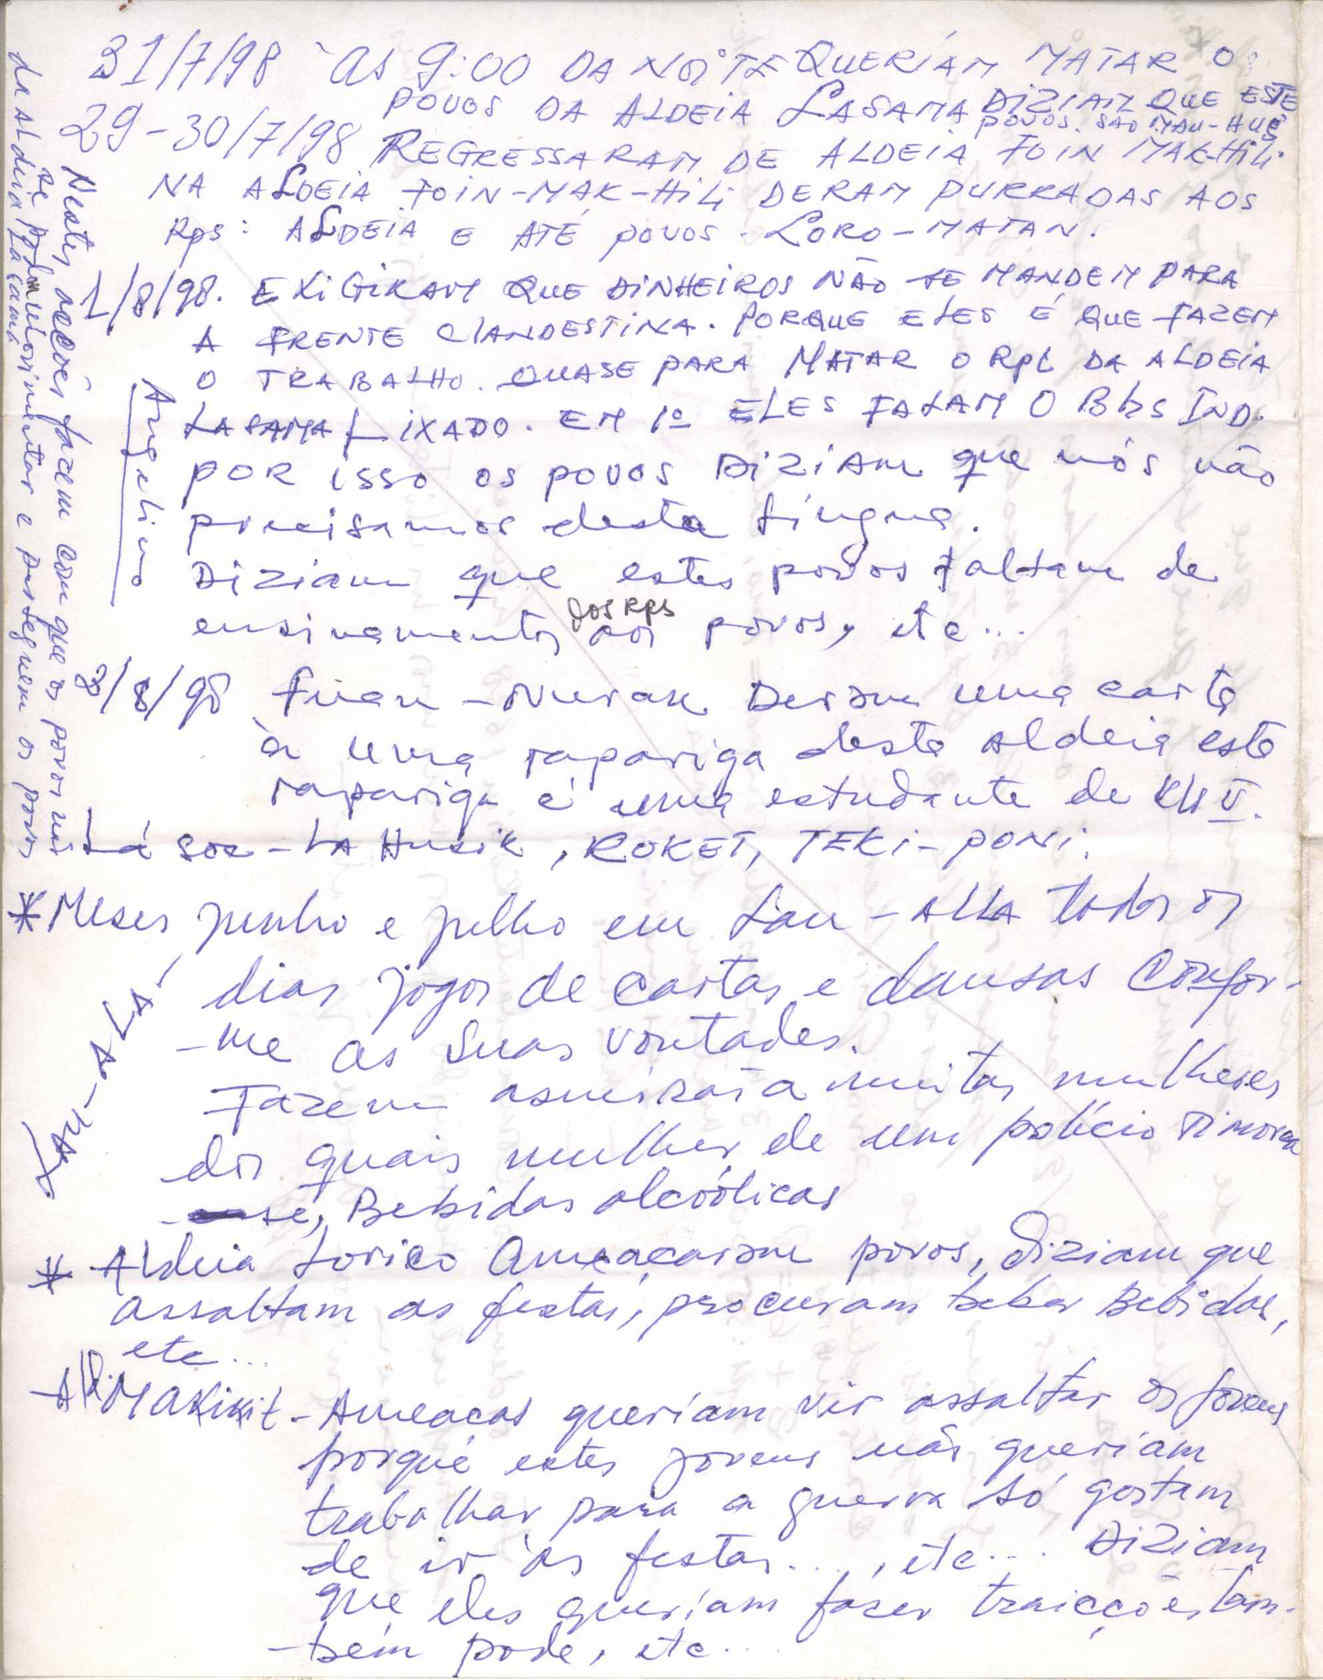 31/7/98 `AS 9:00 DA NOITE QUERIAM MATAR O
POVOS DA ALDEIA LASAMA DIZIAM QUE ESTE
POVOS SÃO MAU-HUS
29-30/7/98 REGRESSARAM DE ALDEIA FOIN MAK-Hili
NA ALDEIA FOIN-MAK-Hili DERAM PURRADAS AOS
Rps: ALDEIA E ATÉ POVOS LORO-MATAN.
1/8/98. EXIGIRAM QUE DINHEIROS NÃO SE MANDEM PARA
A FRENTE CLANDESTINA. PORQUE ELES É QUE FAZEM
O TRABALHO. QUASE PARA MATAR O RpL DA ALDEIA
LASAMA LIXADO. EM 1º ELES FALAM O Bhs IND.
POR ISSO OS POVOS DIZIAM que nós não
precisamos desta Língua.
Diziam que estes povos faltam de
dos Rps
ensinamentos aos povos, etc...
Angelino
3/8/98 Fuan-Nurak Deram uma carta
à uma rapariga desta Aldeia esta
rapariga é uma estudante de KU V.
Lá soe-LA Husik, ROKET, TEKI-PONI.
Nestes acções fazem com que os povos
da ALdeia Lacama
e perseguem os povos
* Meses junho e julho em Lau-ALLA todos os
dias jogos de cartas e dansas confor-
-me as suas vontades.
LAU-ALA
Fazem asneiras a muitas mulheres
dos quais mulher de um polício Timoren
-se, Bebidas alcoólicas
* ALdeia Lorico Ameaçaram povos, diziam que
assaltam as festas, procuram beber Bebidas,
etc...
Ald. MAKikit - Ameacas queriam vir assaltar os jovens
porque estes jovens não queriam
trabalhar para a guerra só gostam
de ir às festas..., etc... Diziam
que eles queriam fazer traicções tam-
-bém pode, etc...